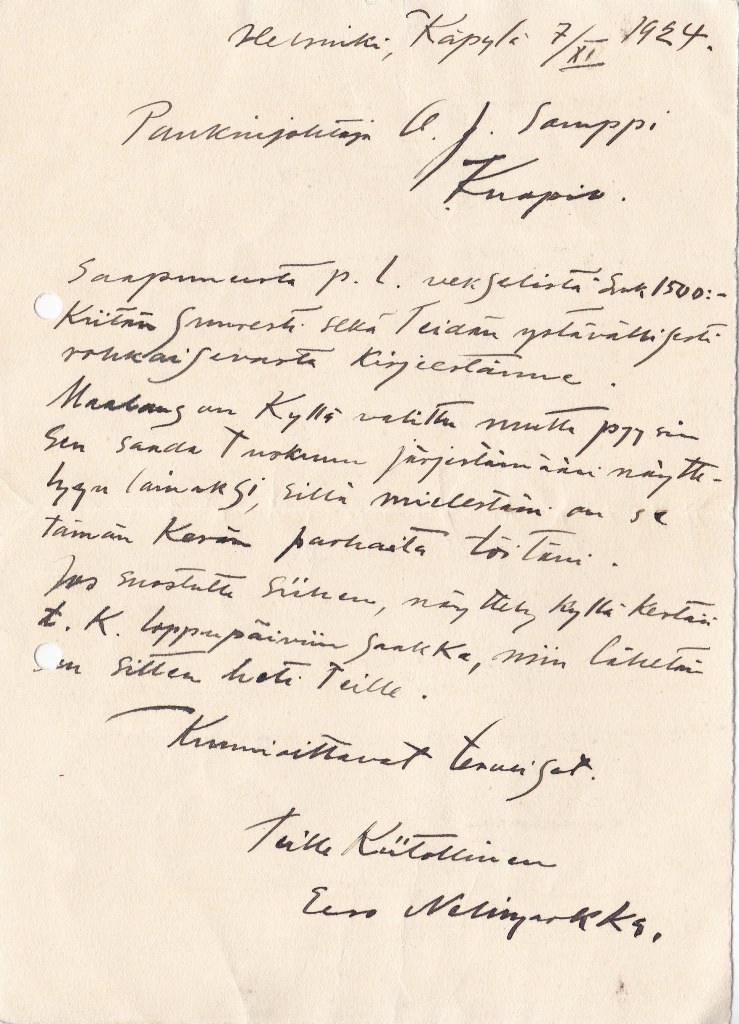 Helsinki, Käpylä 7/XI 1924.
Pankinjohtaja A. J. Samppi
Kuopio.
Saapuneesta p. l. vekselistä Smk 1500:-
Kiitän suuresti sekä Teidän ystävällisesti
rohkaisevasta Kirjeestänne.
Maalaus on Kyllä valittu mutta pyysin
sen saada Turkuun järjestämääni näytte-
lyyn lainaksi, sillä mielestäni on se
tämän Kesän parhaita töitäni.
Jos suostutte siihen, näyttely Kyllä Kestää
t. K. loppupäiviin saakka, niin lähetän
sen sitten heti Teille.
Kunnioittavat terveiset.
Teille Kiitollinen
Eero Nelimarkka.